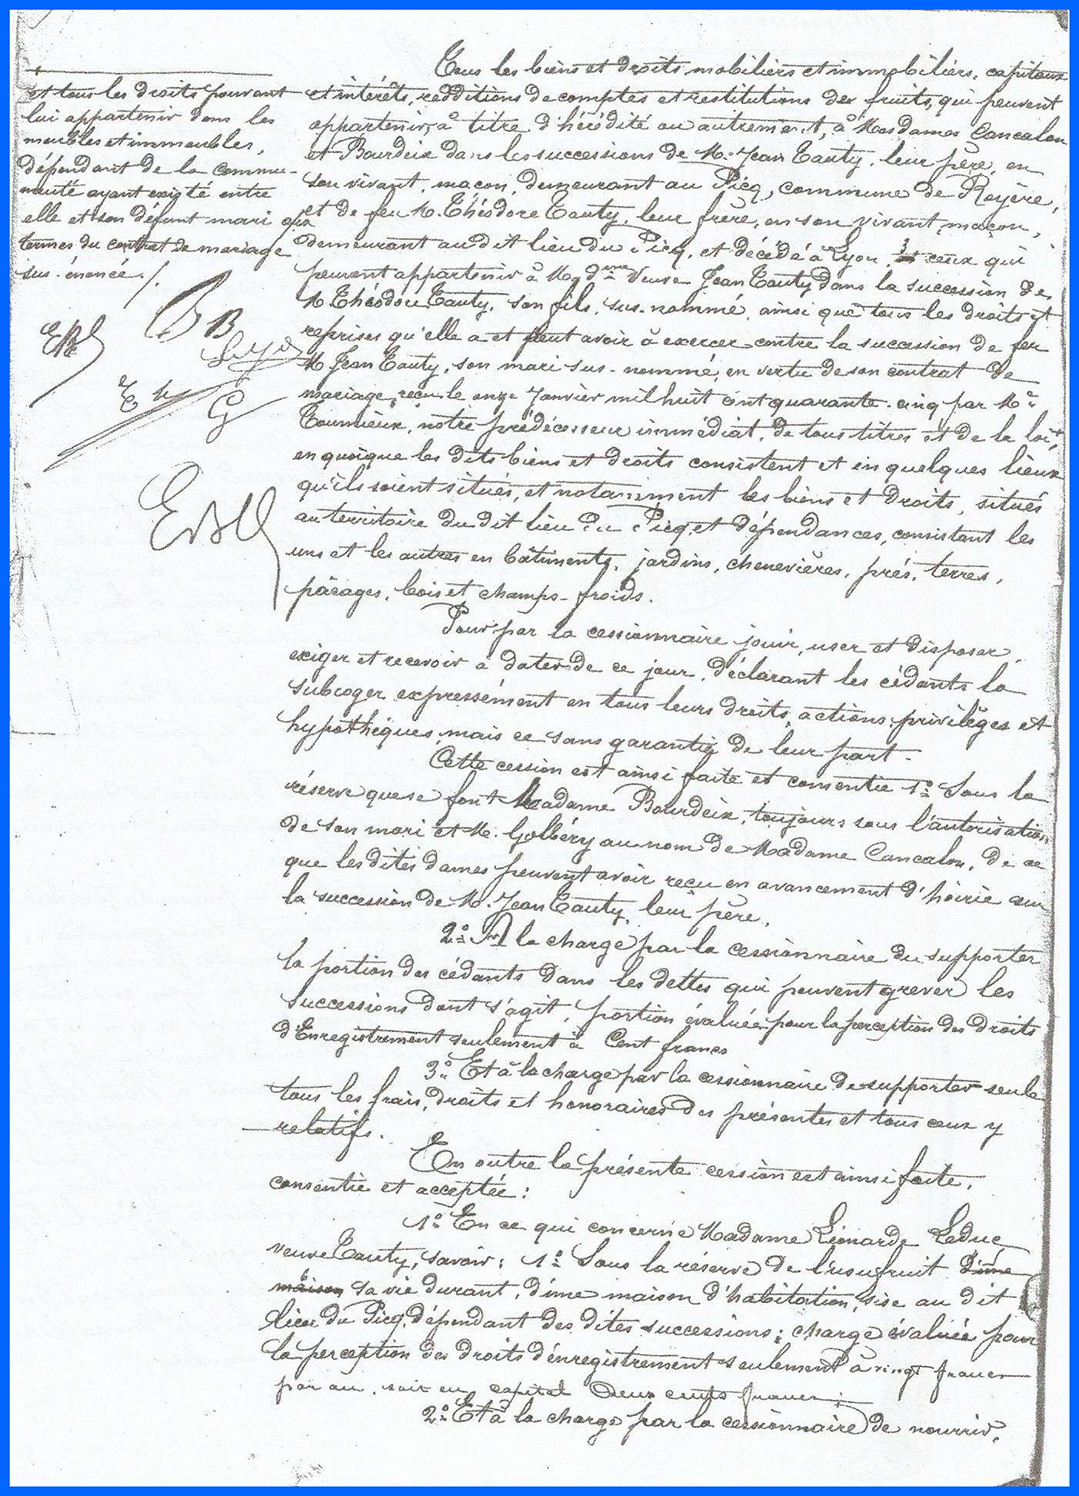 et tous les droits pouvant
lui appartenir dans les
meubles et immeubles,
dépendant de la commu-
nauté ayant existé entre
elle et son défunt mari aux
termes du contrat de mariage
sus-énoncé ./.
BB
G
Tous les biens et droits mobiliers et immobiliers, capitaux
et intérêts, redditions de comptes et restitutions des fruits, qui peuvent
appartenir, à titre d'hérédité ou autrement, à Mesdames Cancalon
et Bourdeix dans les successions de M. Jean Tauty, leur père, en
son vivant, maçon, demeurant au Picq, commune de Royère,
et de feu M. Théodore Tauty, leur frère, en son vivant maçon,
demeurant au dit lieu du Picq, et décédé à Lyon, 3° ceux qui
peuvent appartenir à Mad.me Veuve Jean Tauty dans la succession de
M. Théodore Tauty, son fils, sus-nommé, ainsi que tous les droits et
reprises qu'elle a et peut avoir à exercer contre la succession de feu
M. Jean Tauty, son mari sus-nommé, en vertu de son contrat de
mariage, reçu le onze Janvier mil huit cent quarante-cinq par Me
Toumieux, notre prédécesseur immédiat, de tous titres et de la loi,
en quoique les dits biens et droits consistent et en quelques lieux
qu'ils soient situés, et notamment les biens et droits, situés
au territoire du dit lieu du Picq et dépendances, consistant les
uns et les autres en bâtiments, jardins, chenevières, prés, terres,
pacages, bois et champs-froids.
Pour par la cessionnaire jouir, user et disposer,
exiger et recevoir à dater de ce jour, déclarant les cédants la
subroger expressément en tous leurs droits, actions, privilèges et
hypothèques, mais ce sans garantie de leur part.
Cette cession est ainsi faite et consentie 1° Sous la
réserve que se font Madame Bourdeix, toujours sous l'autorisation
de son mari et M. Golbéry au nom de Madame Cancalon, de ce
que les dites dames peuvent avoir reçu en avancement d'hoirie sur
la succession de M. Jean Tauty, leur père.
2° A la charge par la cessionnaire du supporter
la portion des cédants dans les dettes qui peuvent grever les
successions dont s'agit, portion évaluée pour la perception des droits
d'Enregistrement seulement à Cent francs
3° Et à la charge par la cessionnaire de supporter seule
tous les frais, droits et honoraires des présentes et tous ceux y
relatifs.
En outre la présente cession est ainsi faite,
consentie et acceptée :
1° En ce qui concerne Madame Léonarde Leduc
veuve Tauty, savoir : 1° Sous la réserve de l'usufruit d'une
maison sa vie durant, d'une maison d'habitation, sise au dit
lieu du Picq, dépendant des dites successions ; charge évaluée pour
la perception des droits d'énregistrement seulement à vingt francs
par an, soit en capital Deux cents francs ;
2° Et à la charge par la cessionnaire de nourrir,